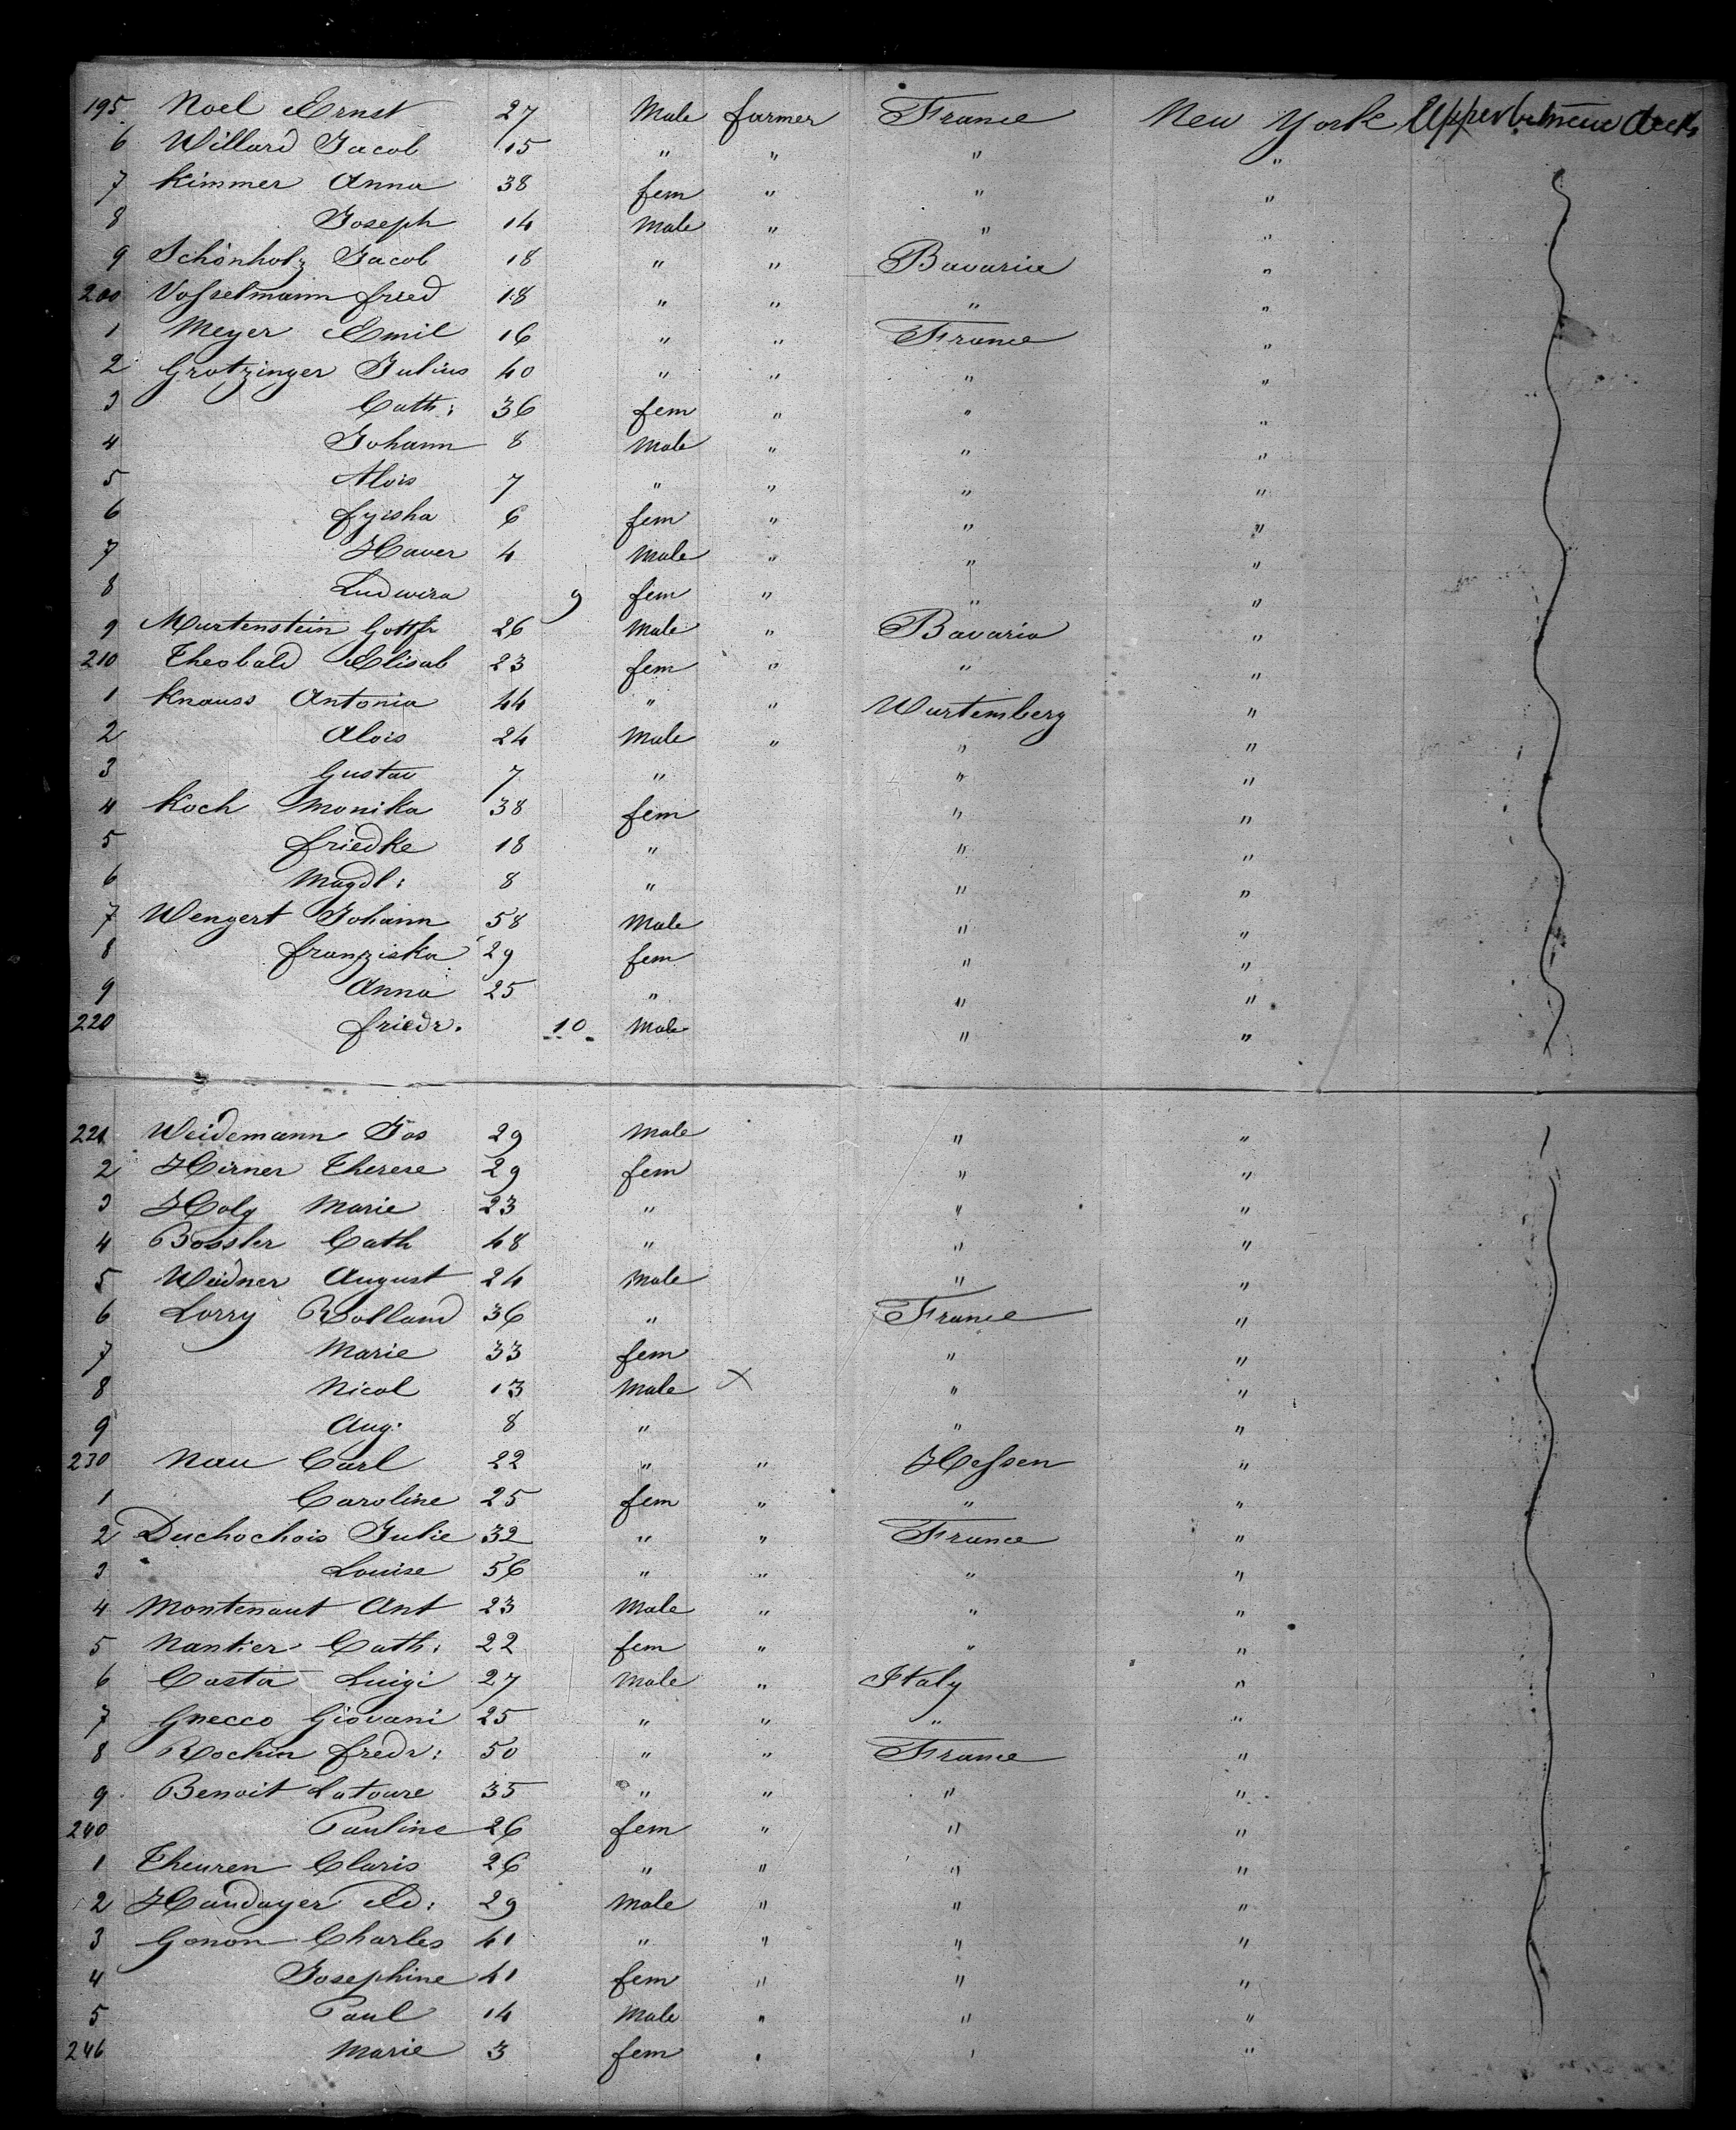 195. Noel Ernst 27 Male farmer France New York Upper between decks
6 Willard Jacob 15 " " " "
7 Kimmer Anna 38 fem " " "
8 Joseph 14 Male " " "
9 Schönholz Jacob 18 " " Bavaria "
200 Vosselmann fried 18 " " " "
1 Meyer Emil 16 " " France "
2 Grotzinger Julius 40 " " " "
3 Cath: 36 fem " " "
4 Johann 8 Male " " "
5 Alois 7 " " " "
6 6 fem " " "
7 Xaver 4 Male " " "
8 Ludwira 9 fem " " "
9 Murtenstein Gottfr 26 Male " Bavaria "
210 Theobald Elisab 23 fem " " "
1 Knauss Antonia 44 " " Wurtemberg "
2 Alois 24 Male " " "
3 Gustav 7 " " "
4 Koch Monika 38 fem " "
5 friedke 18 " " "
6 Magdl: 8 " " "
7 Wengert Johann 58 Male " "
8 franziska 29 fem " "
9 Anna 25 " " "
220 friedr. 10 Male " "
221 Weidemann Jos 29 Male " "
2 Hirner Therese 29 fem " "
3 Marie 23 " " "
4 Bossler Cath 48 " " "
5 Weidner August 24 Male " "
6 Lorry Rolland 36 " France "
7 Marie 33 fem " "
8 Nicol 13 Male X " "
9 Aug. 8 " " "
230 Nau Carl 22 " " Hessen "
1 Caroline 25 fem " " "
2 Duchochois Julie 32 " " France "
3 Louise 56 " " " "
4 Montenaut Ant 23 Male " " "
5 Nantier Cath: 22 fem " " "
6 Costa Luigi 27 Male " Italy "
7 Gnecco Giovani 25 " " " "
8 Rochin fredr: 50 " " France "
9 Benoit Latoure 35 " " " "
240 Pauline 26 fem " " "
1 Theuren Claris 26 " " " "
2 Haudayer Ed: 29 Male " " "
3 Gonon Charles 41 " " " "
4 Josephine 41 fem " " "
5 Paul 14 Male " " "
246 Marie 3 fem " " "